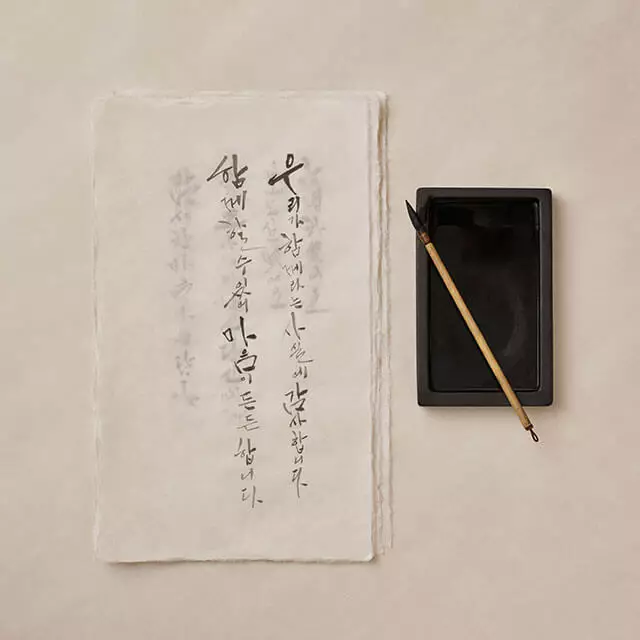 우리가 함께라는 사실에 감사합니다.
함께 할 수 있어 마음이 든든합니다.